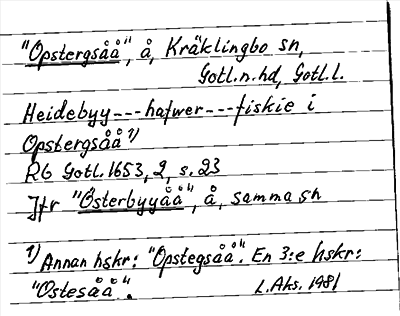 "Opstergsåå", å, Kräklingbo sn,
Gotl.n.hd, Gotl.l.
Heidebyy---hafwer---fiskie i
Opstergsåå 1)
RG Gotl. 1653, 2, s. 23
Jfr "Österbyyåå", å, samma sn
1) Annan hskr: "Opstegsåå". En 3:e hskr:
"Ostesåå".
L. Aks. 1981